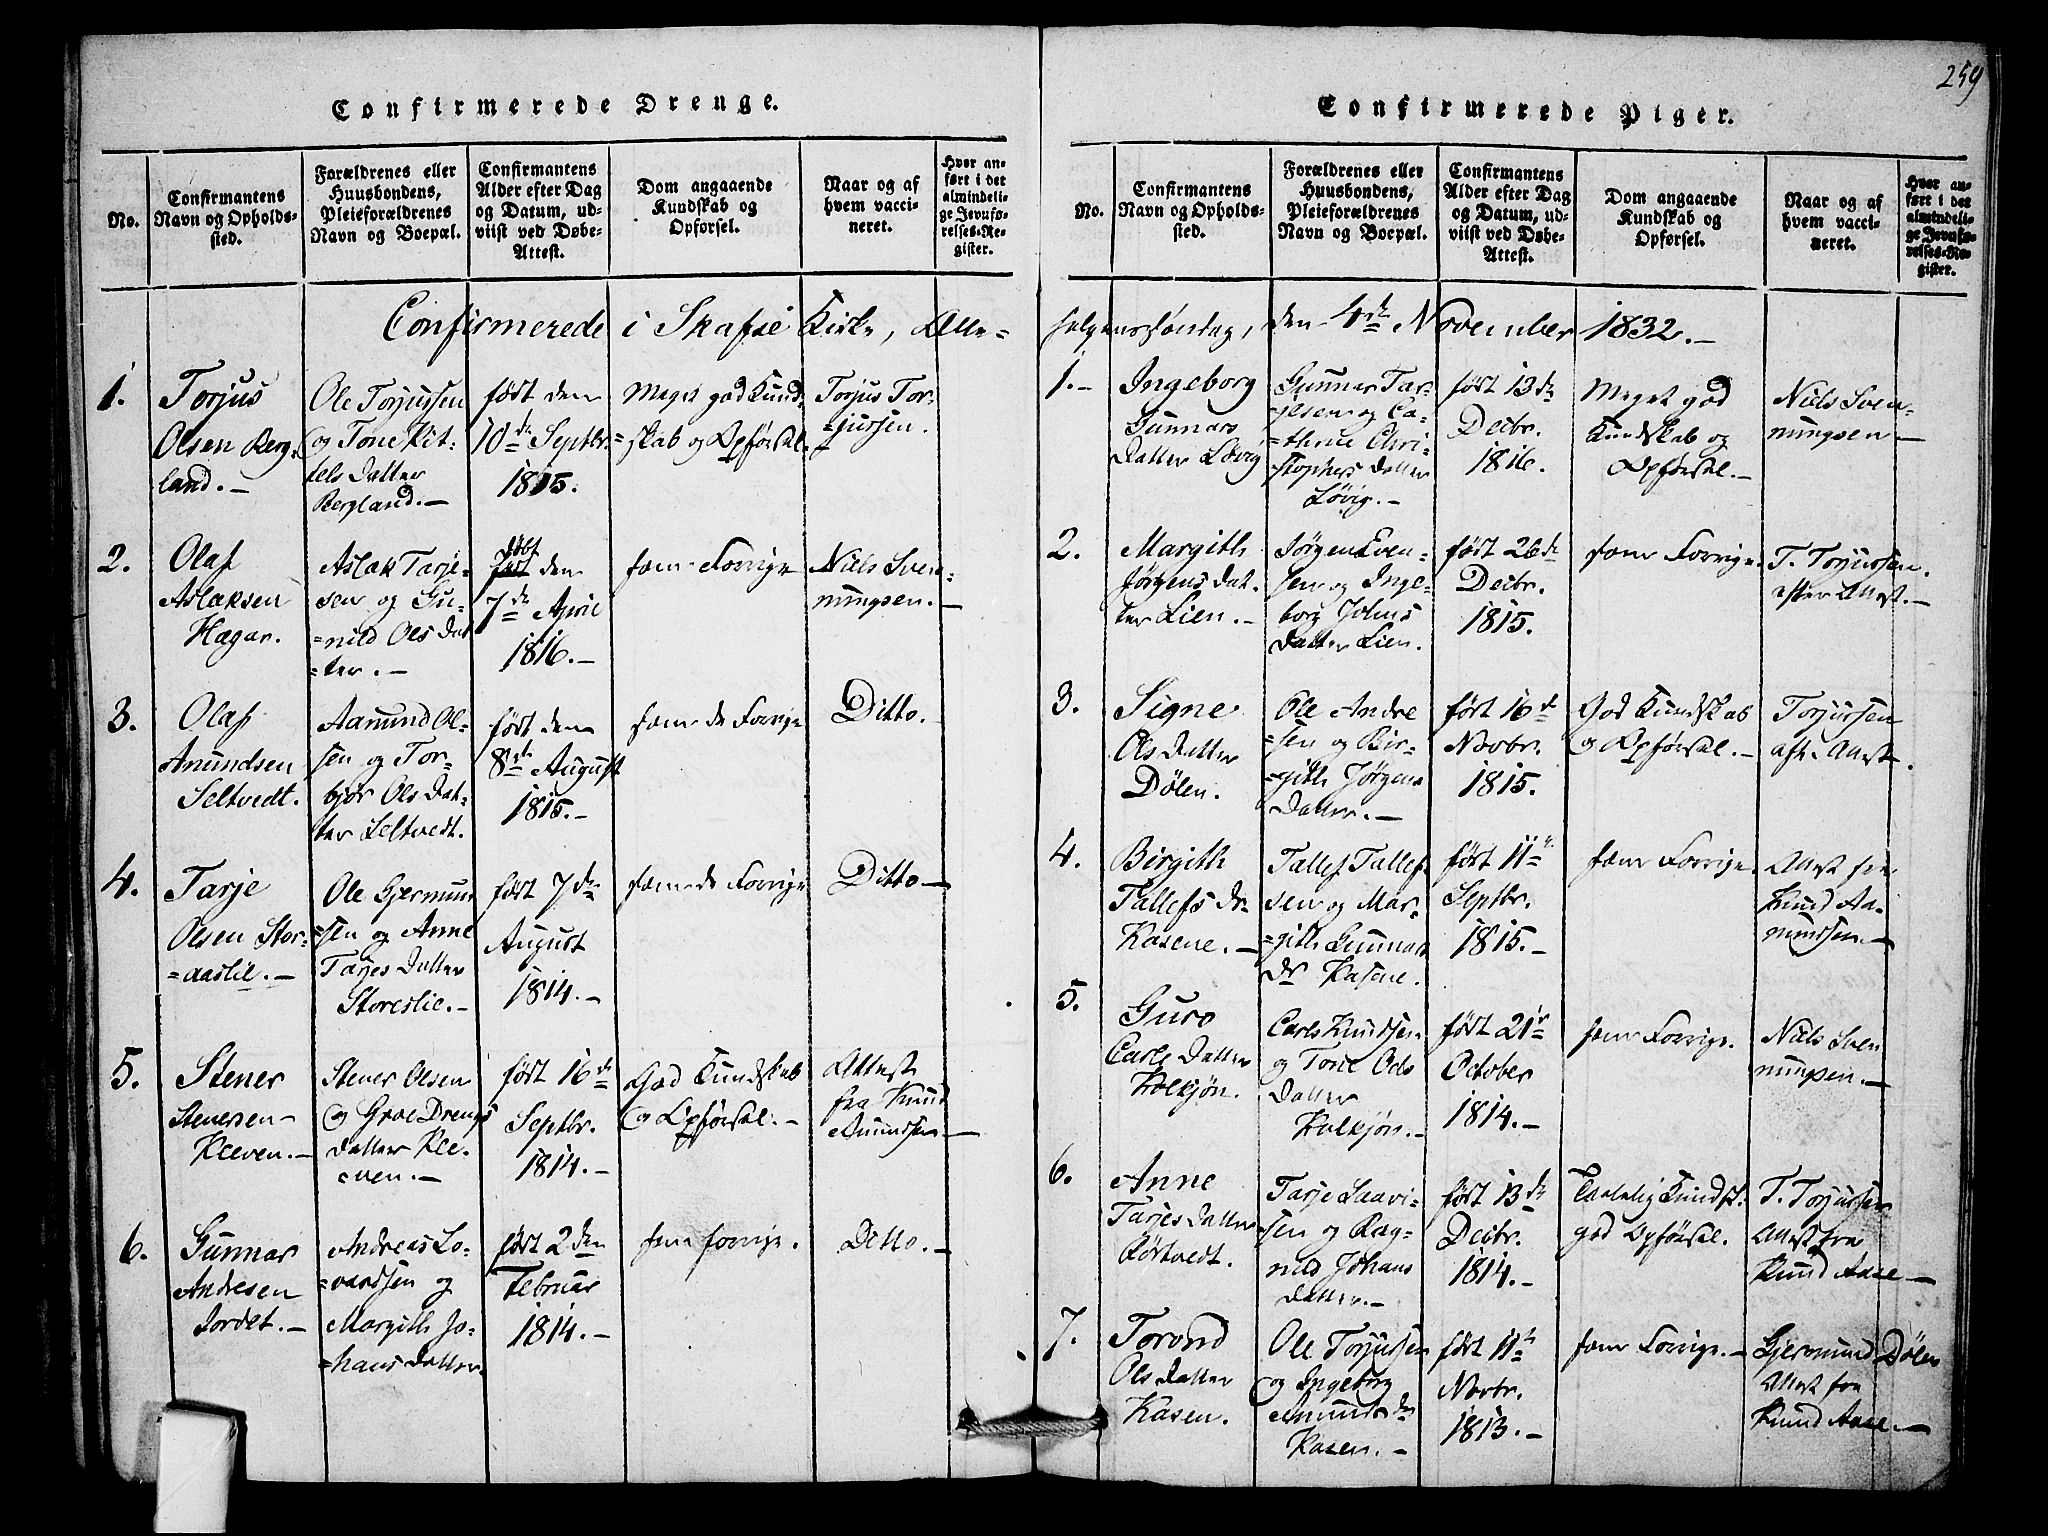 259
Confirmerede Drenge.
No.
Confirmantens
Navn og Opholds-
sted.
Forældrenes eller
Huusbondens,
Pleieforældrenes
Navn og Boepæl.
Confirmantens
Alder efter Dag
og Datum, ud-
viist ved Døbe-
Attest.
Dom angaaende
Kundskab og
Opførsel.
Naar og af
hvem vacci-
neret.
Hvor an-
ført i det
almindeli-
ge Jevnfø-
relses-Re-
gister.
Confirmerede i Skafse Kirke, Alle-
1.
Torjus
Olsen Berg-
land.-
Ole Torjussen
og Tone Kit-
tels Datter
Bergland.-
født den
10de Septbr.
1815.
Meget god Kund-
=skab og Opførsel.
Torjus Tor-
=jussen.
2.
Olaf
Aslaksen
Hægar.
Aslak Tarje-
sen og Gu-
=nild Ols Dat
=ter.-
døbt
født den
7de April
1816.-
som Forrige
Niels Sven-
nungsen.-
3.
Olaf
Anundsen
Seltvedt.
Aanund Ol-
sen og Tor-
bjør Ols Dat-
ter Seltvedt.
født den
8de August
1815.-
som de Forrige
Ditto.
4.
Tarje
Olsen Stor-
=aaslie.-
Ole Gjermund
=sen og Anne
Tarjes Datter
Storeslie.-
født 7de
August
1814.-
som de Forrige
Ditto-
5.
Stener
Stenersen-
Kleven.-
Stener Olsen
og Groe Drengs
Datter Kle-
even.-
født 16de
Septbr.
1814.-
God Kundskab
og Opførsel.-
Attest
fra Knud
Anundsen-
6.
Gunnar
Andresen
Jordet.-
Andreas Lo-
=vardsen og
Margith Jo-
=hans Datter
født 2den
Februar
1814.-
som forrige.
Ditto.-
Confirmerede Piger.
No.
Confirmantens
Navn og Opholds-
sted.
Forældrenes eller
Huusbondens,
Pleieforældrenes
Navn og Boepæl.
Confirmantens
Alder efter Dag
og Datum, ud-
viist ved Døbe-
Attest.
Dom angaaende
Kundskab og
Opførsel.
Naar og af
hvem vacci-
neret.
Hvor an-
ført i det
almindeli-
ge Jevnfø-
relses-Re-
gister.
helgenssøndag, den 4de November 1832.-
1.-
Ingeborg
Gunnars
Datter Løvig
Gunnar Tar-
jesen og Ca-
=thrine Chri-
stophers Datter
Løvig.-
født 13de
Decbr.
1816.
Meget god
Kundskab og
Opførsel.-
Niels Sven-
nungsen-
2.
Margith
Jørgens Dat-
ter Lien.-
Jørgen Even-
sen og Inge-
borg Johns
Datter Lien.
født 26de
Decbr.
1815.
som Forrige.
T. Torjussen.
efter Attest.-
3.
Signe
Ols Datter
Dølen.
Ole Andre
=sen og Bir-
=gith Jørgens
Datter.-
født 16de
Novbr.
1815.
God Kundskab
og Opførsel.-
Torjussen
eft. Attest.
4.
Birgith
Tallefs Dr
Kasene.-
Tallef Tallef
sen og Mar-
=gith Gunnars
Dr Kasene.
født 11te
Septbr.
1815.-
som Forrige.
Attest fra
Knud Aa-
nundsen.-
5.
Guro
Carls Datter
Kolkjøn.
Carls Knudsen
og Tone Ols
Datter
Kolkjøn.-
født 21de
October
1814.-
som Forrige.
Niels Sven
nungsen.-
6.
Anne
Tarjes Datter
Rørtvedt.
Tarje Saavi-
sen og Rag-
nild Johans
Datter.-
født 13de
Decbr.
1814.-
Taalelig Kundsk.
god Opførsel.
T. Torjussen
Attest fra
Knud Aase-
7.
Torond
Ols Datter
Kasen.
Ole Torjussen
og Ingeborg
Amunds Dr
Kasen.-
født 11te
Novbr.
1813.-
som Forrige.-
Gjermund Dølen
Attest fra
Knud Aase-